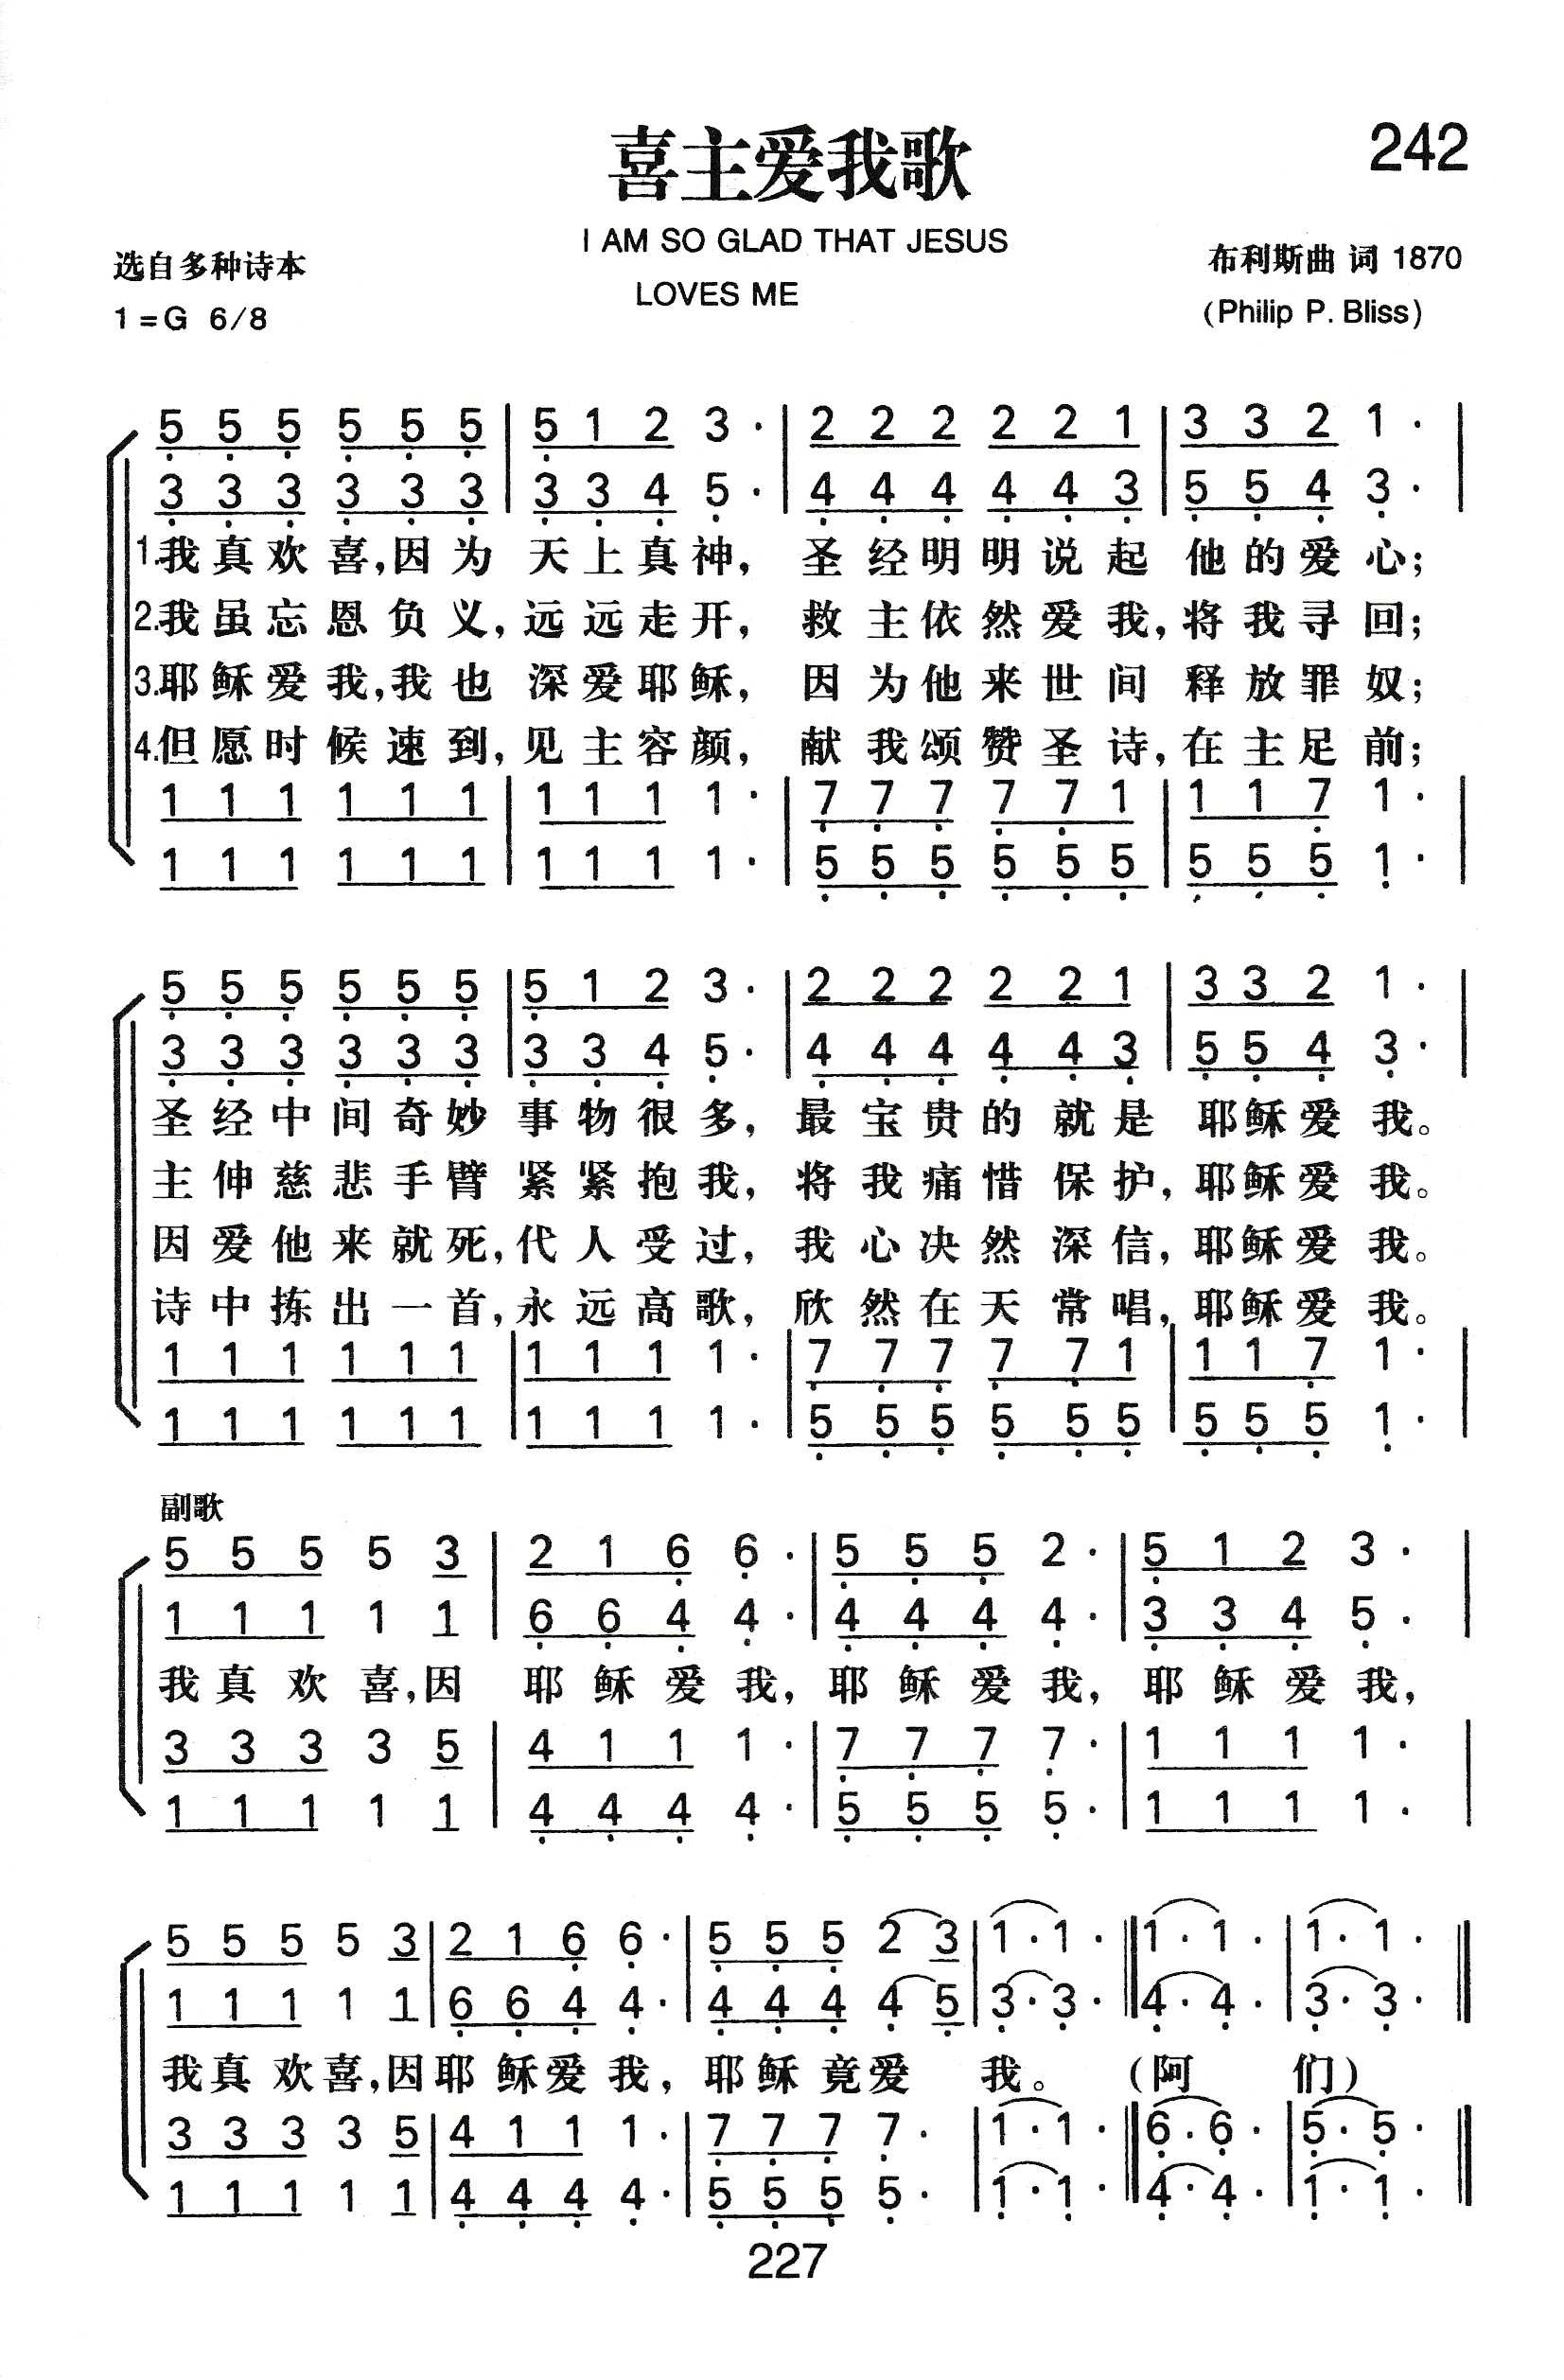 喜主爱我歌
242
I AM SO GLAD THAT JESUS
LOVES ME
选自多种诗本
1=G 6/8
布利斯曲 词 1870
(Philip P. Bliss)
5 5 5 5 5 5 | 5 1 2 3 · | 2 2 2 2 2 1 | 3 3 2 1 · |
3 3 3 3 3 3 | 3 3 4 5 · | 4 4 4 4 4 3 | 5 5 4 3 · |
1.我真欢喜,因为 天上真神, 圣经明明说起 他的爱心;
2.我虽忘恩负义,远远走开, 救主依然爱我,将我寻回;
3.耶稣爱我,我也 深爱耶稣, 因为他来世间 释放罪奴;
4.但愿时候速到,见主容颜, 献我颂赞圣诗,在主足前;
1 1 1 1 1 1 | 1 1 1 1 · | 7 7 7 7 7 1 | 1 1 7 1 · |
1 1 1 1 1 1 | 1 1 1 1 · | 5 5 5 5 5 5 | 5 5 5 1 · |
5 5 5 5 5 5 | 5 1 2 3 · | 2 2 2 2 2 1 | 3 3 2 1 · |
3 3 3 3 3 3 | 3 3 4 5 · | 4 4 4 4 4 3 | 5 5 4 3 · |
圣经中间奇妙 事物很多, 最宝贵的就是 耶稣爱我。
主伸慈悲手臂 紧紧抱我, 将我痛惜保护,耶稣爱我。
因爱他来就死,代人受过, 我心决然深信,耶稣爱我。
诗中拣出一首,永远高歌, 欣然在天常唱,耶稣爱我。
1 1 1 1 1 1 | 1 1 1 1 · | 7 7 7 7 7 1 | 1 1 7 1 · |
1 1 1 1 1 1 | 1 1 1 1 · | 5 5 5 5 5 5 | 5 5 5 1 · |
副歌
5 5 5 5 3 | 2 1 6 6 · | 5 5 5 2 · | 5 1 2 3 · |
1 1 1 1 1 | 6 6 4 4 · | 4 4 4 4 · | 3 3 4 5 · |
我真欢喜,因 耶稣爱我,耶稣爱我, 耶稣爱我,
3 3 3 3 5 | 4 1 1 1 · | 7 7 7 7 · | 1 1 1 1 · |
1 1 1 1 1 | 4 4 4 4 · | 5 5 5 5 · | 1 1 1 1 · |
5 5 5 5 3 | 2 1 6 6 · | 5 5 5 2 3 | 1 · 1 · || 1 · 1 · | 1 · 1 · ||
1 1 1 1 1 | 6 6 4 4 · | 4 4 4 4 5 | 3 · 3 · || 4 · 4 · | 3 · 3 · ||
我真欢喜,因耶稣爱我, 耶稣竟爱 我。 (阿 们)
3 3 3 3 5 | 4 1 1 1 · | 7 7 7 7 · | 1 · 1 · || 6 · 6 · | 5 · 5 · ||
1 1 1 1 1 | 4 4 4 4 · | 5 5 5 5 · | 1 · 1 · || 4 · 4 · | 1 · 1 · ||
227